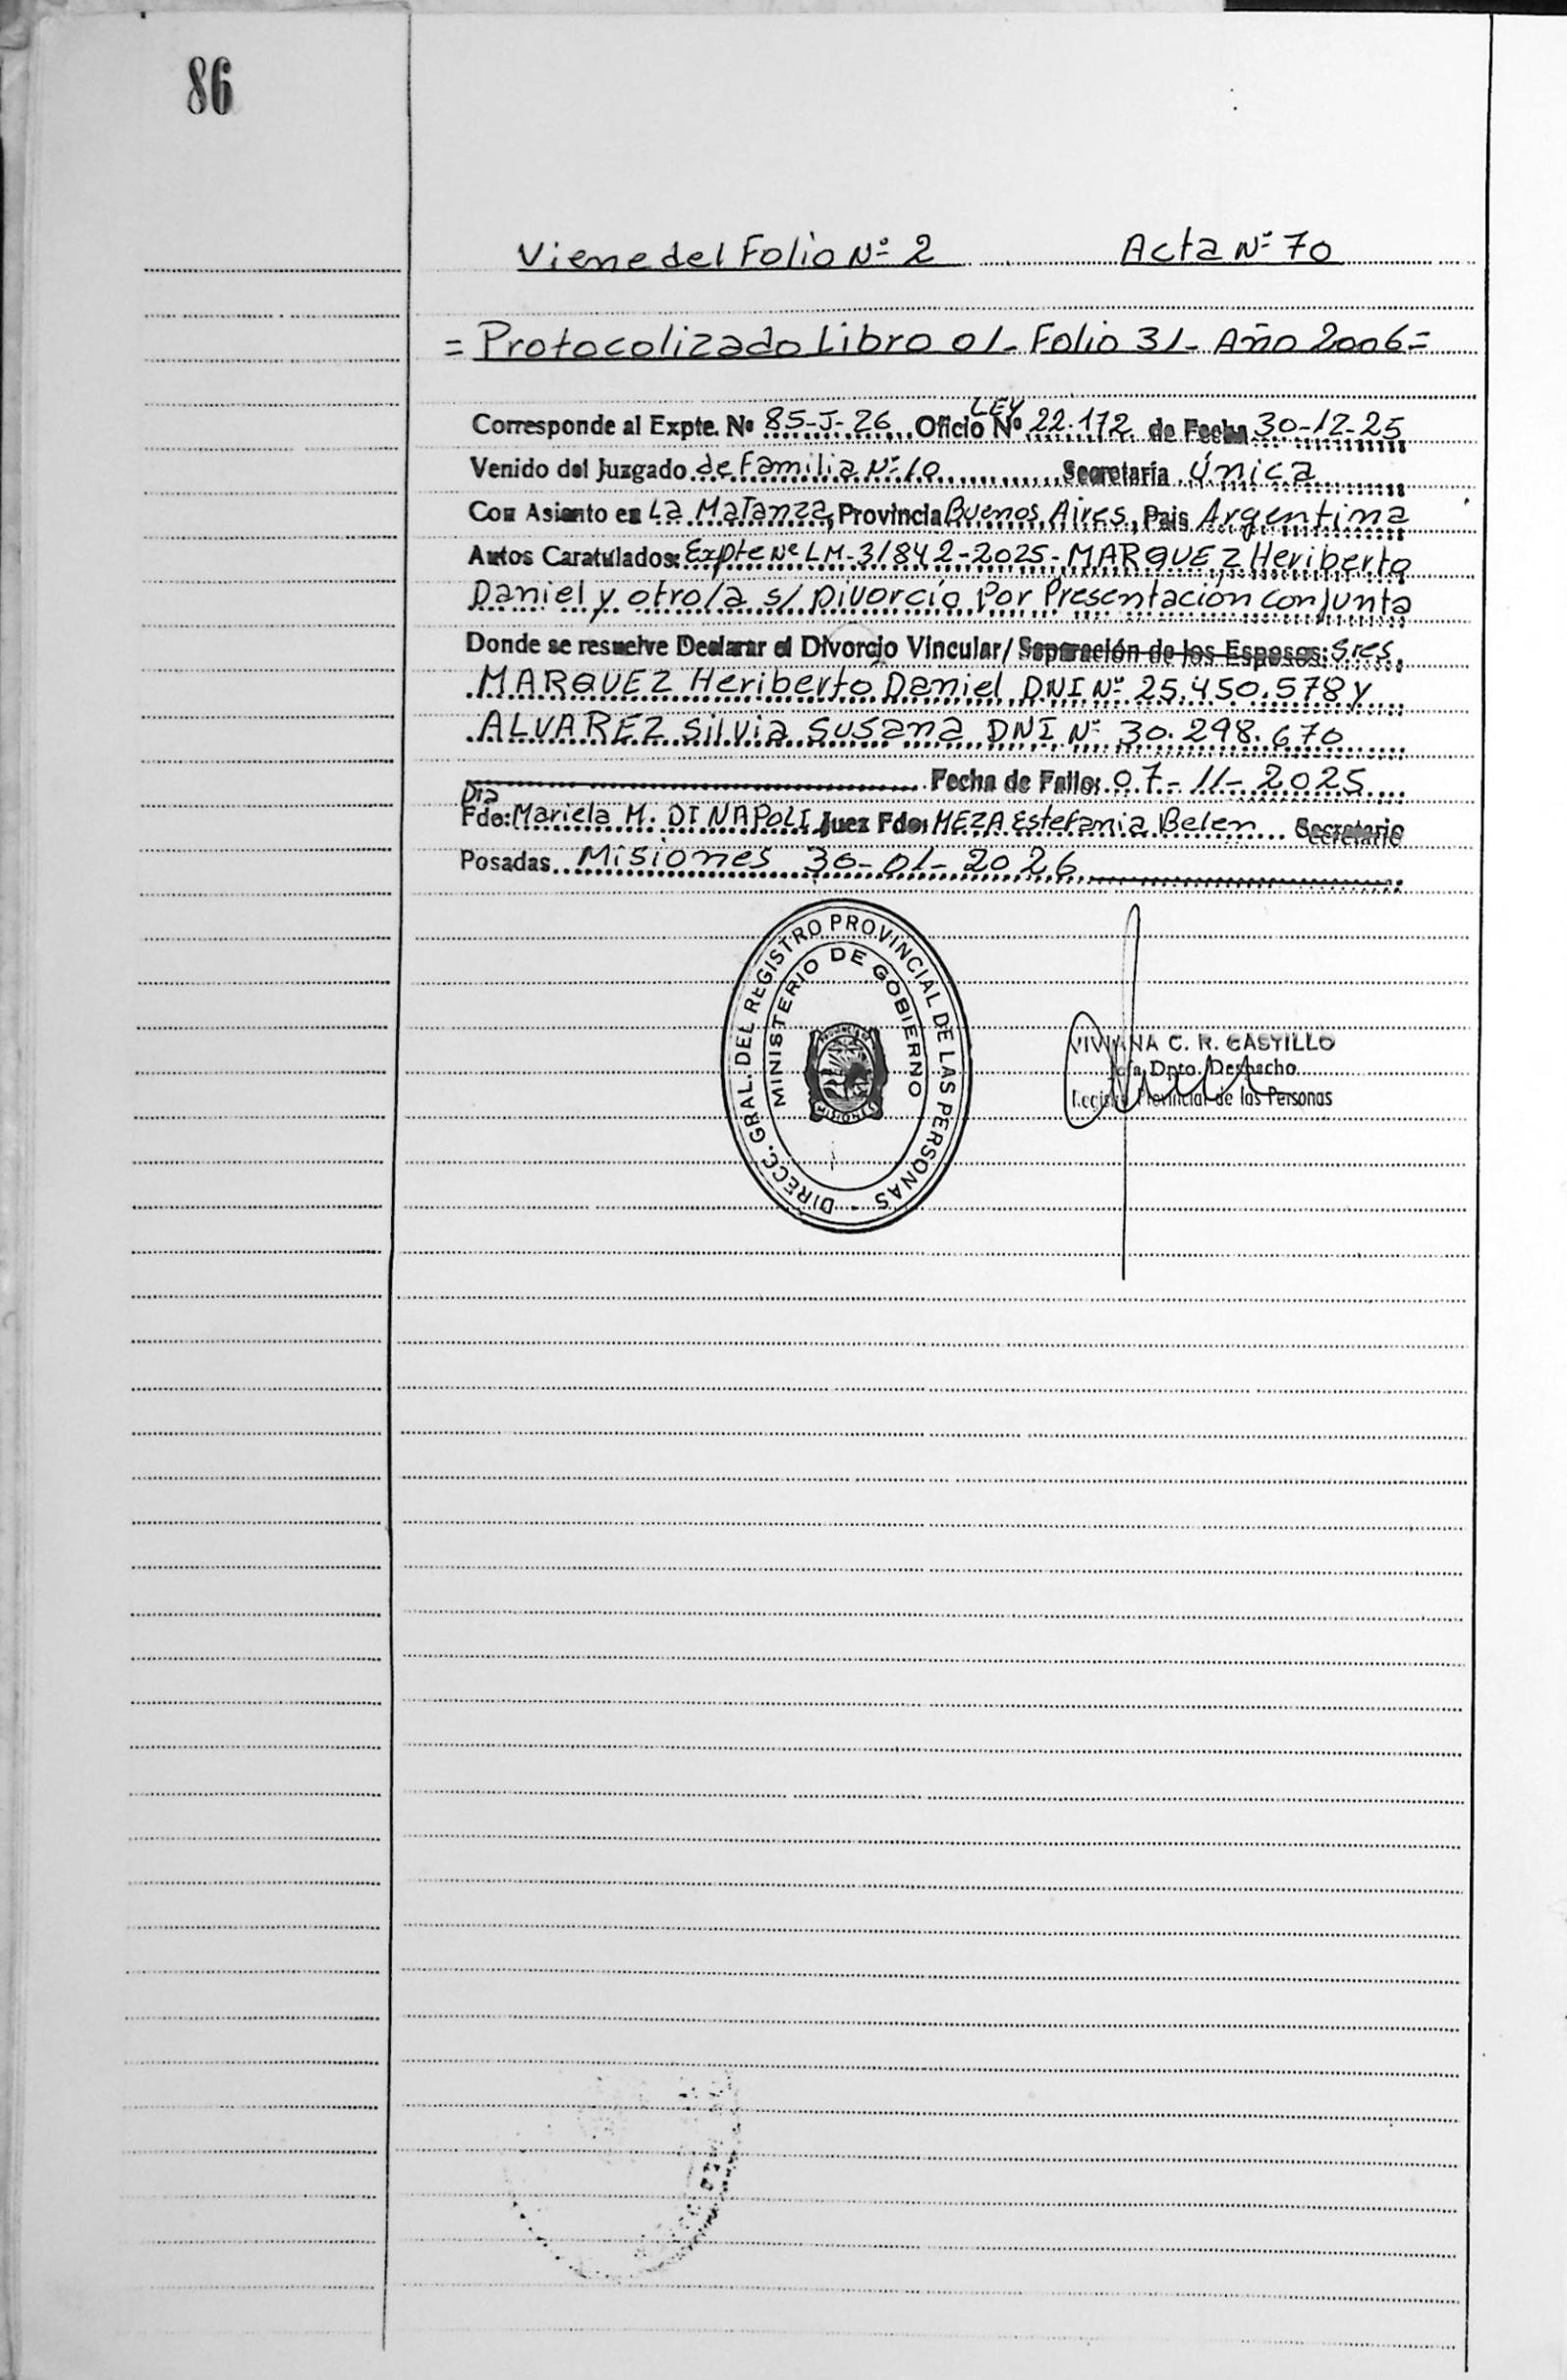 86
Viene del Folio Nº 2 Acta Nº 70
= Protocolizado Libro 01- Folio 31- Año 2006 =
Corresponde al Expte. Nº 85-J-26 Oficio LEY Nº 22.172 de Fecha 30-12-25
Venido del Juzgado de Familia Nº 10 Secretaría Única
Con Asiento en La Matanza, Provincia Buenos Aires, Pais Argentina
Autos Caratulados: Expte Nº LM-31842-2025- MARQUEZ Heriberto
Daniel y otro/a s/ Divorcio Por Presentación conjunta
Donde se resuelve Declarar el Divorcio Vincular/ Separación de los Esposos: Sres.
MARQUEZ Heriberto Daniel DNI Nº 25.450.578 y
ALVAREZ Silvia Susana DNI Nº 30.298.670
Fecha de Fallo: 07-11-2025
Dra
Fdo: Mariela M. DI NAPOLI Juez Fdo: MEZA Estefania Belen Secretario
Posadas Misiones 30-01-2026
DIRECC. GRAL. DEL REGISTRO PROVINCIAL DE LAS PERSONAS -
MINISTERIO DE GOBIERNO
MISIONES
VIVIANA C. R. CASTILLO
Jefa Dpto. Despacho
Registro Provincial de las Personas